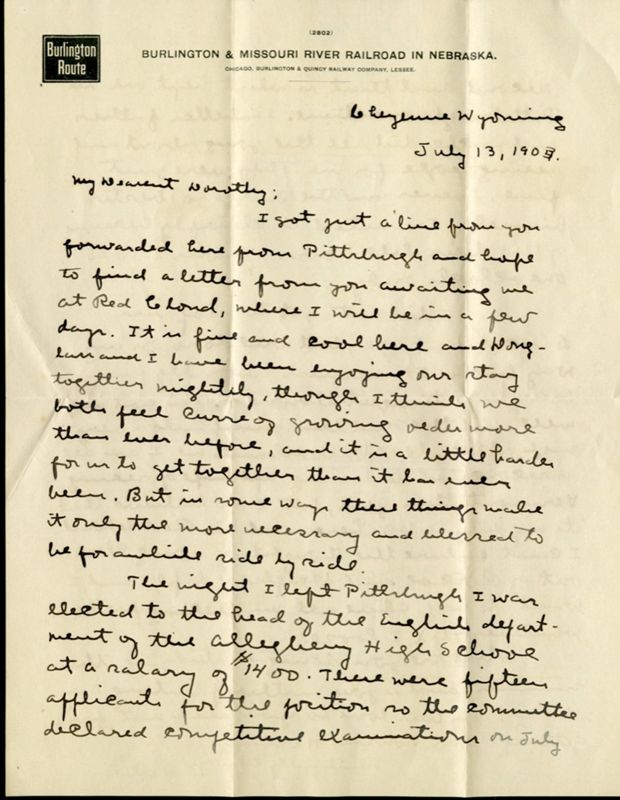 (2802)
Burlington
Route
BURLINGTON & MISSOURI RIVER RAILROAD IN NEBRASKA.
CHICAGO, BURLINGTON & QUINCY RAILWAY COMPANY, LESSEE.
Cheyenne Wyoming
July 13, 1903.
My Dearest Dorothy;
I got just a line from you
forwarded here from Pittsburgh and hope
to find a letter from you awaiting me
at Red Cloud, where I will be in a few
days. It is fine and cool here and Doug-
lass and I have been enjoying our stay
together mightily, though I think we
both feel the curse of growing older more
than ever before, and it is a little harder
for us to get together than it has ever
been. But in some ways these things make
it only the more necessary and blessed to
be for awhile side by side.
The night I left Pittsburgh I was
elected to the head of the English depart-
ment of the Allegheny High School
at a salary of $1400. There were fifteen
applicants for the position so the committee
declared competitive examinations on July